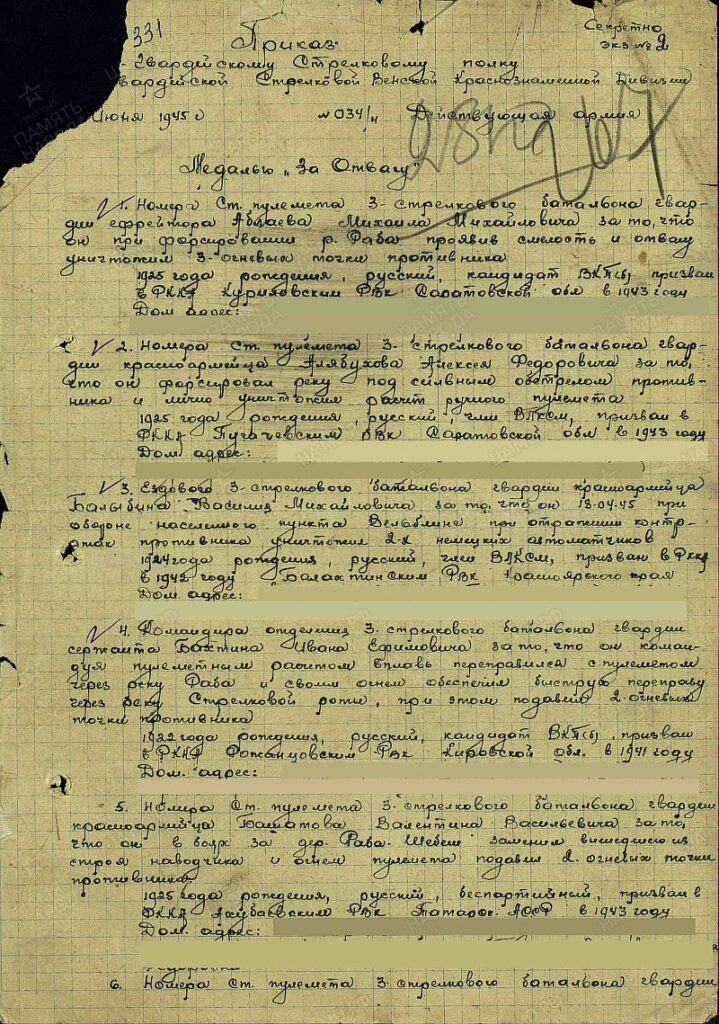 331
Секретно
экз № 2
Приказ
Гвардейскому Стрелковому полку
вардейской Стрелковой Венской Краснознаменной Дивизии
Июня 1945 г № 034/н Действующая армия
Медалью „За Отвагу"
1. Номера Ст. пулемета 3-стрелкового баталъона гвар-
дии ефрейтора Михаила Михайловича за то, что
он при форсировании р. Раба проявив смелость и отвагу
уничтожил 3-огневых точки противника
1925 года рождения, русский, кандидат ВКП(б) призван
в РККА Куриловским РВк Саратовской обл в 1943 году
Дом адрес:
2. Номера Ст. пулемета 3-стрелкового баталъона гвар-
дии красноармейца Алябухова Алексея Федоровича за то,
что он форсировал реку под сильным обстрелом против-
ника и лично уничтожил расчет ручного пулемета
1925 года рождения, русский, член ВЛКСМ, призван в
РККА Пугачевским РВк Саратовской обл в 1943 году
Дом. адрес:
3. Ездового 3-стрелкового баталъона гвардии красноармейца
Василия Михайловича за то, что он 18-04-45 при
обороне населенного пункта при отражении контр-
атак противника уничтожил 2-х немецких автоматчиков
1924 года рождения, русский, член ВЛКСМ, призван в РККА
в 1942 году Балахтинским РВк Красноярского края
Дом. адрес:
4. Командира отделения 3-стрелкового баталъона гвардии
сержанта Бахтина Ивана Ефимовича за то, что он коман-
дуя пулеметным расчетом вплавь переправился с пулеметом
через реку Раба и своим огнем обеспечил быструю переправу
через реку Стрелковой роты, при этом подавил 2-огневых
точки противника
1922 года рождения, русский, кандидат ВКП(б), призван
в РККА РВк Кировской обл. в 1941 году
Дом. адрес:
5. Номера Ст. пулемета 3-стрелкового баталъона гвардии
красноармейца Башатова Валентина Васильевича за то,
что он в боях за дер. Раба-Шебеш заменил вышедшего из
строя наводчика и огнем пулемета подавил 2-огневых точки
противника
1925 года рождения, русский, беспартийный, призван в
РККА РВк Татарск. АССР в 1943 году
Дом. адрес:
6. Номера Ст. пулемета 3-стрелкового баталъона гвардии